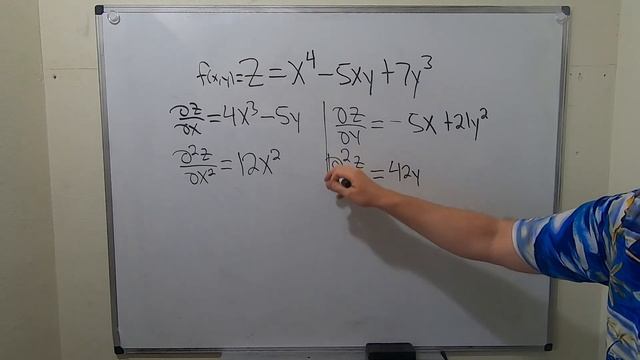 f(x,y)=Z=x⁴-5xy+7y³
∂z/∂x=4x³-5y
∂²z/∂x²=12x²
∂z/∂y=-5x+21y²
∂²z =42y